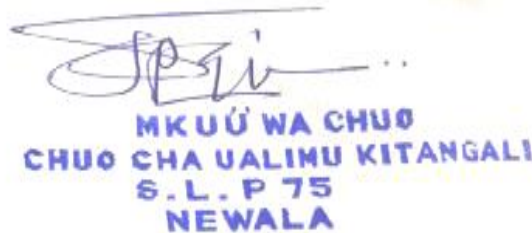 MKUU WA CHUO
CHUO CHA UALIMU KITANGALI
S.L.P 75
NEWALA